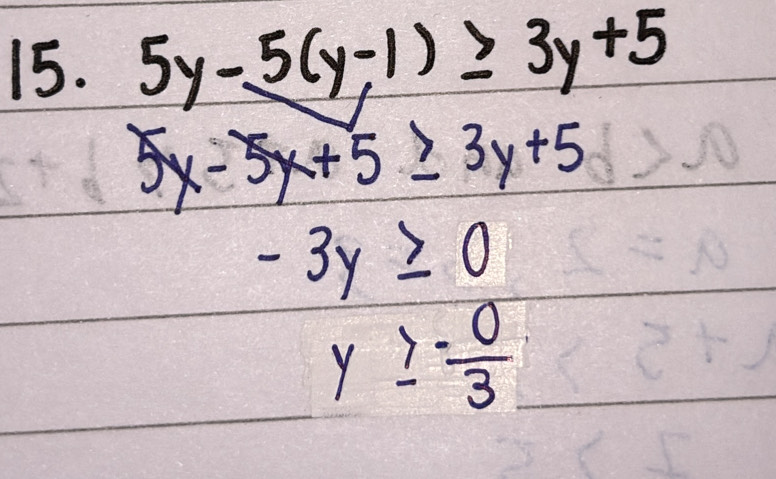 15. 5y - 5(y-1) ≥ 3y+5
5y - 5y + 5 ≥ 3y+5
- 3y ≥ 0
y ≥ - 0/3